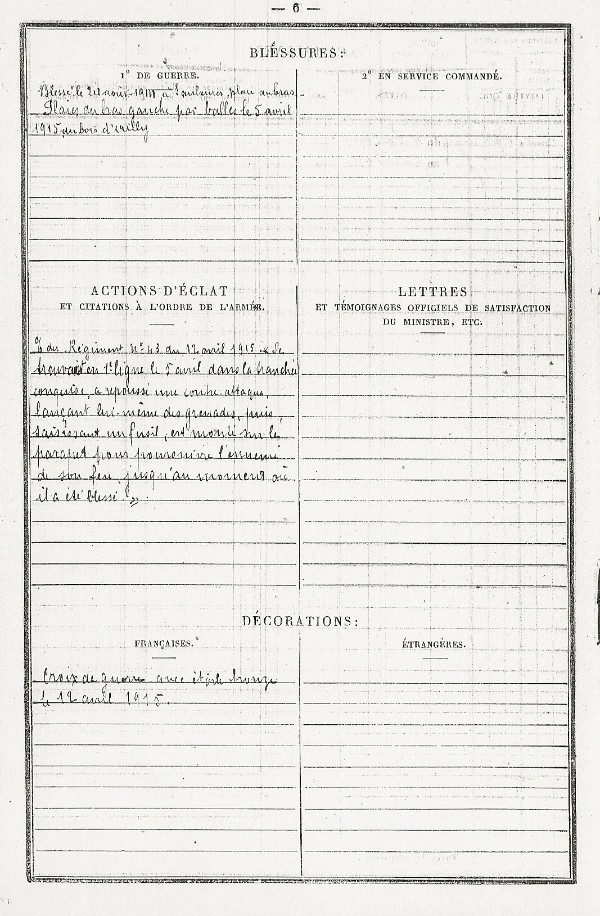 — 6 —
BLESSURES:
1° DE GUERRE.
Blessé le 24 août 1914 à plaie au bras.
Plaies au bras gauche par balles le 5 avril
1915 au bois d'Ailly
2° EN SERVICE COMMANDÉ.
ACTIONS D'ÉCLAT
ET CITATIONS À L'ORDRE DE L'ARMÉE.
du Régiment N° 43 du 12 avril 1915 « Se
trouvant en 1e ligne le 5 avril dans la tranchée
conquise, a repoussé une contre-attaque,
lançant lui-même des grenades, puis,
saisissant un fusil, est monté sur le
parapet pour poursuivre l'ennemi
de son feu jusqu'au moment où
il a été blessé ».
LETTRES
ET TÉMOIGNAGES OFFICIELS DE SATISFACTION
DU MINISTRE, ETC.
DÉCORATIONS:
FRANÇAISES.
Croix de guerre avec étoile bronze
le 12 avril 1915.
ÉTRANGÈRES.